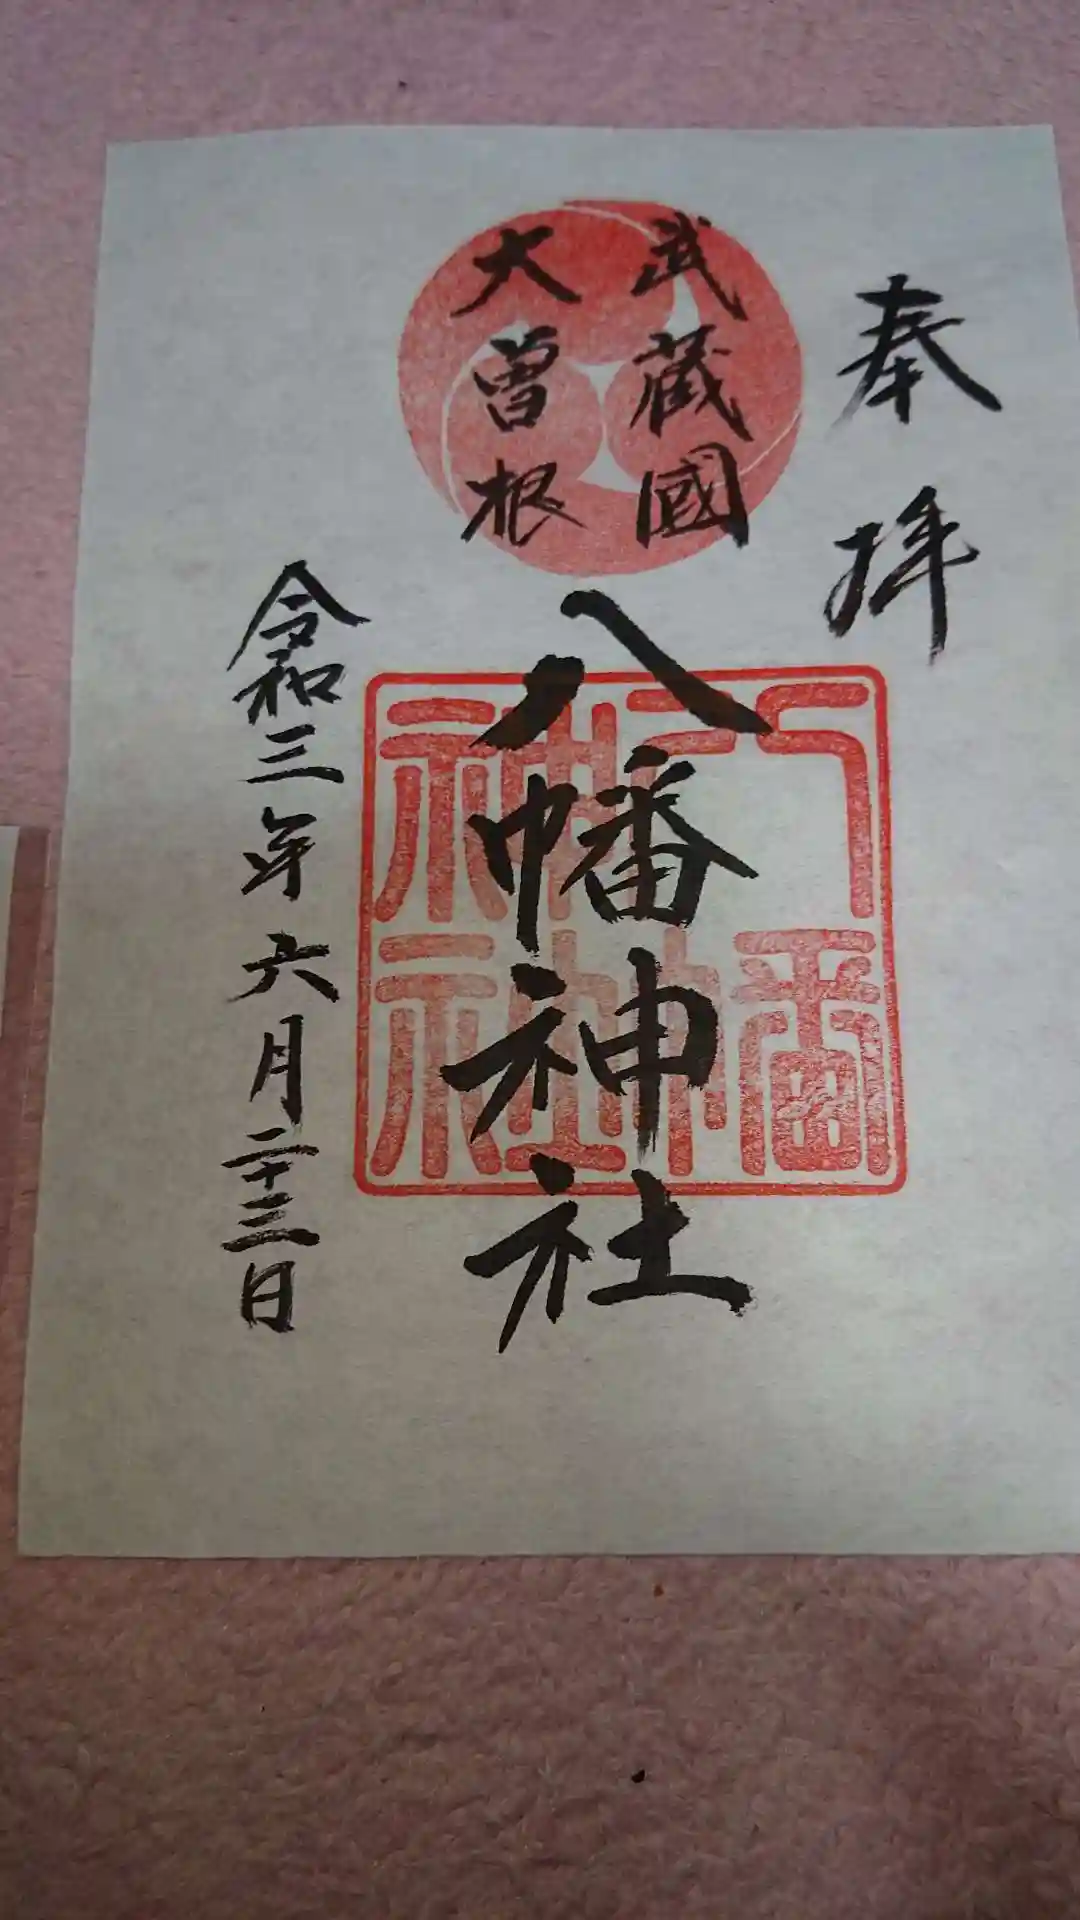 奉拝
武蔵國
大曽根
八幡神社
八幡神社
令和三年六月二十三日